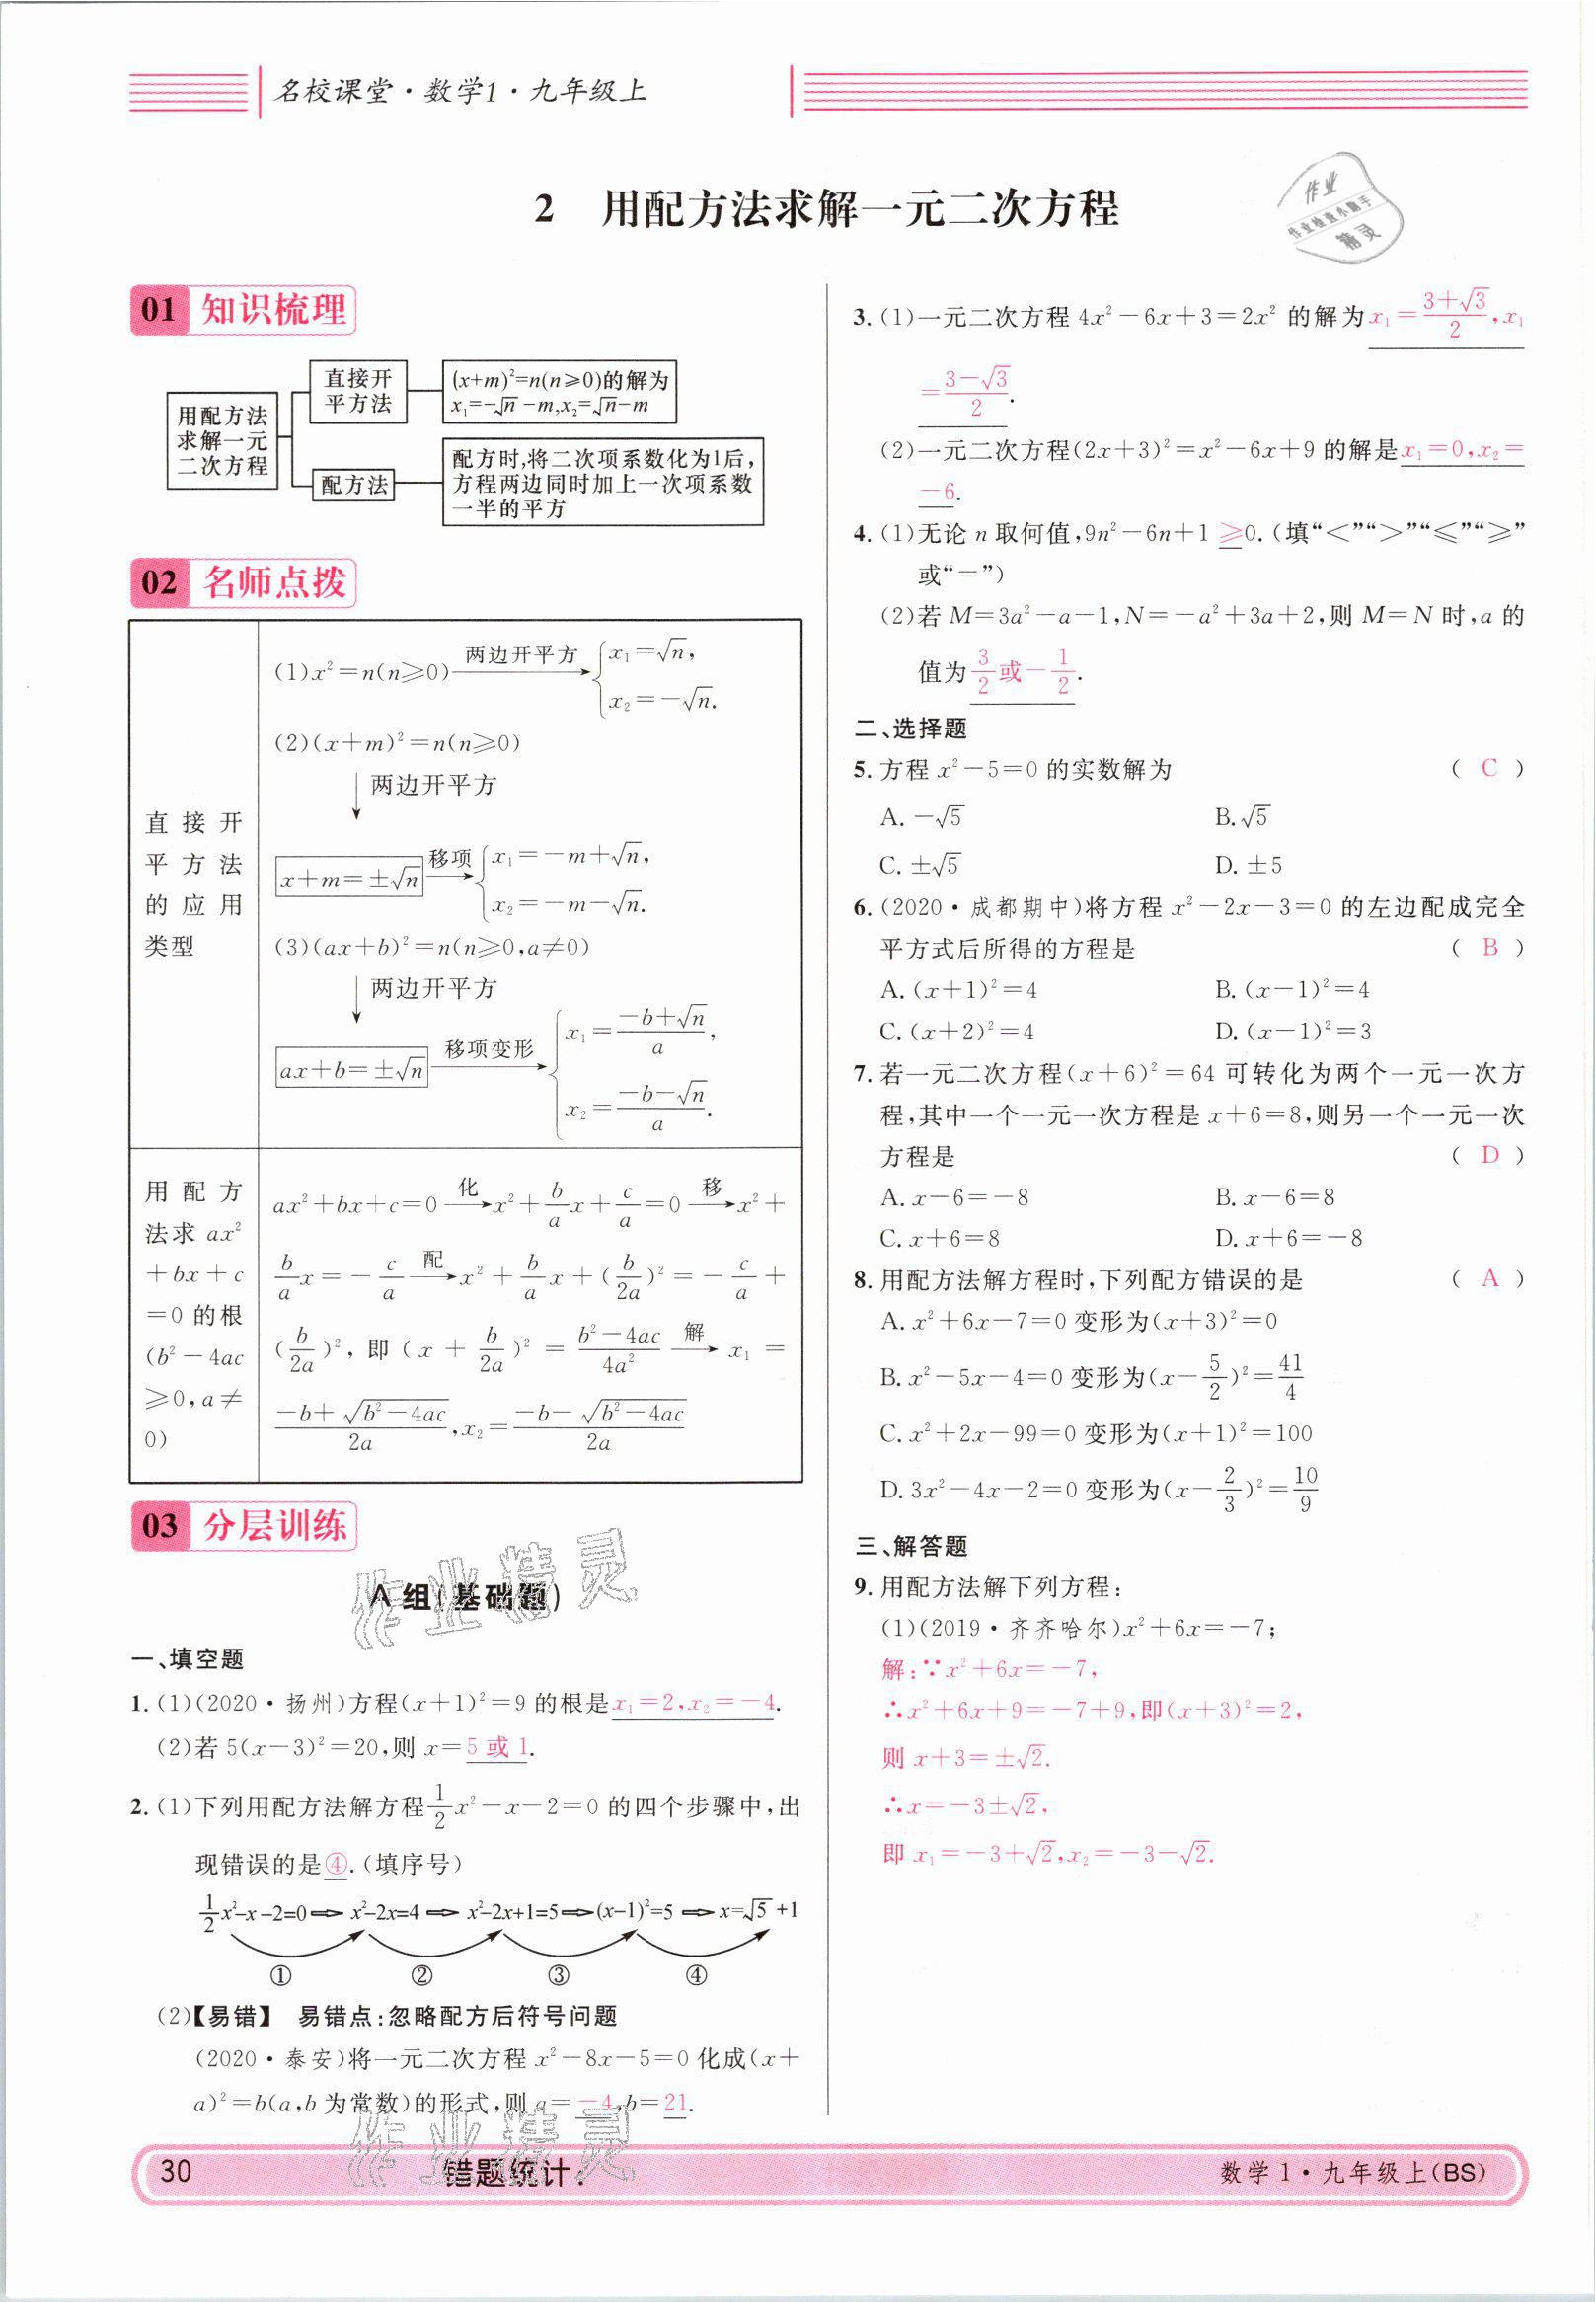 名校课堂·数学1·九年级上
作业
作业检查小助手
精灵
2 用配方法求解一元二次方程
01 知识梳理
用配方法
求解一元
二次方程
直接开
平方法
(x+m)²=n(n≥0)的解为
x₁=-√n-m,x₂=√n-m
配方法
配方时,将二次项系数化为1后,
方程两边同时加上一次项系数
一半的平方
02 名师点拨
直接开
平方法
的应用
类型
(1)x²=n(n≥0) 两边开平方→ {x₁=√n,
x₂=-√n.
(2)(x+m)²=n(n≥0)
↓两边开平方
x+m=±√n 移项→ {x₁=-m+√n,
x₂=-m-√n.
(3)(ax+b)²=n(n≥0,a≠0)
↓两边开平方
ax+b=±√n 移项变形→ {x₁=(-b+√n)/a,
x₂=(-b-√n)/a.
用配方
法求 ax²
+bx+c
=0的根
(b²-4ac
≥0,a≠
0)
ax²+bx+c=0 化→ x²+b/a x+c/a=0 移→ x²+
b/a x=-c/a 配→ x²+b/a x+(b/2a)²=-c/a+
(b/2a)²,即(x+b/2a)²=(b²-4ac)/4a² 解→ x₁=
(-b+√(b²-4ac))/2a,x₂=(-b-√(b²-4ac))/2a
03 分层训练
A组(基础题)
作业精灵
一、填空题
1.(1)(2020·扬州)方程(x+1)²=9的根是x₁=2,x₂=-4.
(2)若5(x-3)²=20,则x=5或1.
2.(1)下列用配方法解方程1/2x²-x-2=0的四个步骤中,出
现错误的是④.(填序号)
1/2x²-x-2=0⇒x²-2x=4⇒x²-2x+1=5⇒(x-1)²=5⇒x=√5+1
① ② ③ ④
(2)【易错】 易错点:忽略配方后符号问题
(2020·泰安)将一元二次方程x²-8x-5=0化成(x+
a)²=b(a,b为常数)的形式,则a=-4,b=21.
3.(1)一元二次方程4x²-6x+3=2x²的解为x₁=(3+√3)/2,x₁
=(3-√3)/2.
(2)一元二次方程(2x+3)²=x²-6x+9的解是x₁=0,x₂=
-6.
4.(1)无论n取何值,9n²-6n+1≥0.(填“<”“>”“≤”“≥”
或“=”)
(2)若M=3a²-a-1,N=-a²+3a+2,则M=N时,a的
值为3/2或-1/2.
二、选择题
5.方程x²-5=0的实数解为 ( C )
A.-√5 B.√5
C.±√5 D.±5
6.(2020·成都期中)将方程x²-2x-3=0的左边配成完全
平方式后所得的方程是 ( B )
A.(x+1)²=4 B.(x-1)²=4
C.(x+2)²=4 D.(x-1)²=3
7.若一元二次方程(x+6)²=64可转化为两个一元一次方
程,其中一个一元一次方程是x+6=8,则另一个一元一次
方程是 ( D )
A.x-6=-8 B.x-6=8
C.x+6=8 D.x+6=-8
8.用配方法解方程时,下列配方错误的是 ( A )
A.x²+6x-7=0变形为(x+3)²=0
B.x²-5x-4=0变形为(x-5/2)²=41/4
C.x²+2x-99=0变形为(x+1)²=100
D.3x²-4x-2=0变形为(x-2/3)²=10/9
三、解答题
9.用配方法解下列方程:
(1)(2019·齐齐哈尔)x²+6x=-7;
解:∵x²+6x=-7,
∴x²+6x+9=-7+9,即(x+3)²=2,
则x+3=±√2.
∴x=-3±√2,
即x₁=-3+√2,x₂=-3-√2.
作业精灵
30 错题统计: 数学1·九年级上(BS)